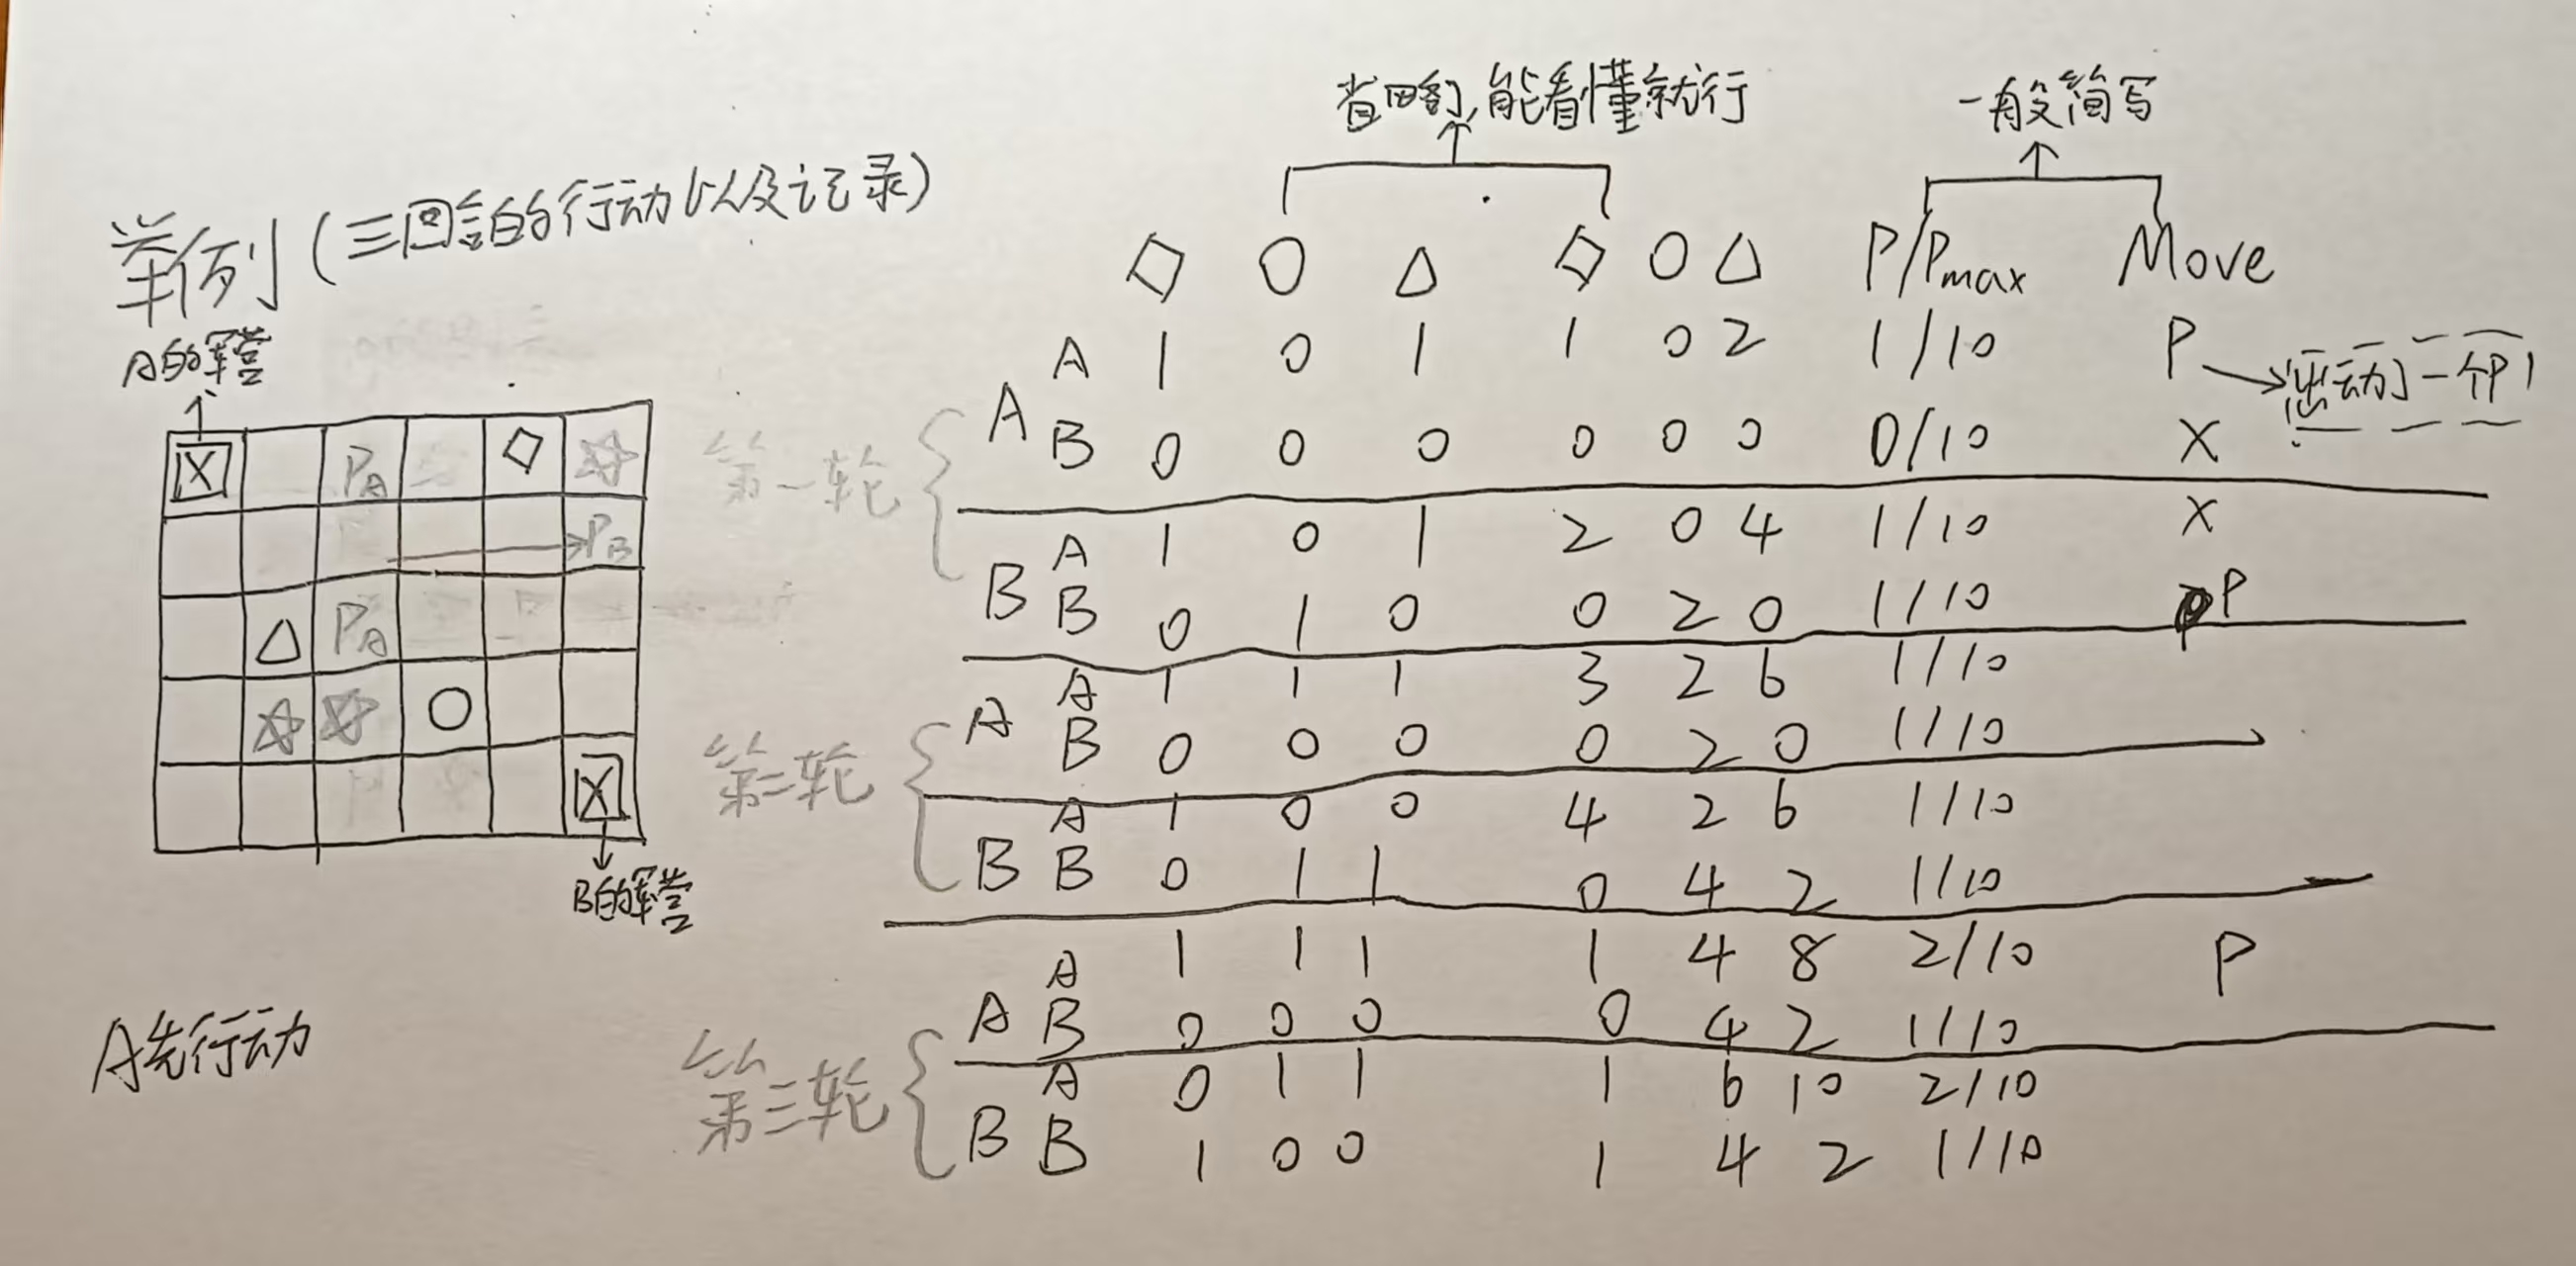 省略, 能看懂就行
一般简写
举例(三回合的行动以及记录)
◇ ○ △ ◇ ○ △ P/Pmax Move
A的军营
A A 1 0 1 1 0 2 1/10 P → 出动了一个P!
B 0 0 0 0 0 0 0/10 X
第一轮
B A 1 0 1 2 0 4 1/10 X
B 0 1 0 0 2 0 1/10 P
A A 1 1 1 3 2 6 1/10
B 0 0 0 0 2 0 1/10
第二轮
B A 1 0 0 4 2 6 1/10
B 0 1 1 0 4 2 1/10
A A 1 1 1 1 4 8 2/10 P
B 0 0 0 0 4 2 1/10
第三轮
B A 0 1 1 1 6 10 2/10
B 1 0 0 1 4 2 1/10
X PA ◇ ☆
PB
△ PA
☆ ☆ ○
X
B的军营
A先行动